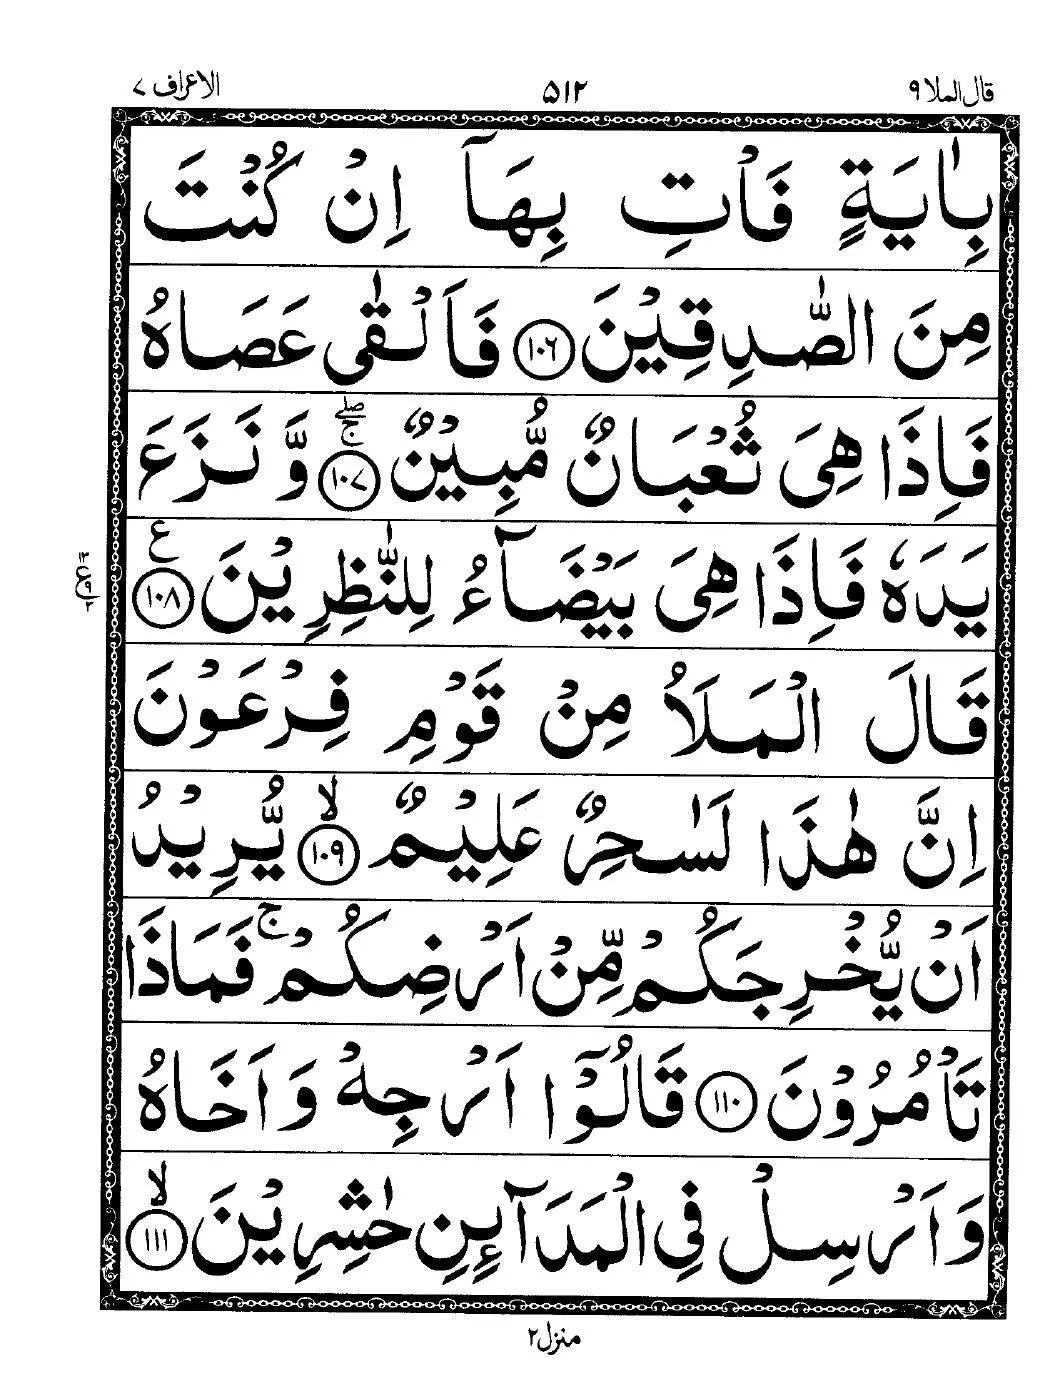 قال الملا ٩ ۵۱۲ الاعراف ٧
بِاٰيَةٍ فَاْتِ بِهَآ اِنْ كُنْتَ
مِنَ الصّٰدِقِيْنَ ۝١٠٦ فَاَلْقٰى عَصَاهُ
فَاِذَا هِىَ ثُعْبَانٌ مُّبِيْنٌ ۝١٠٧ ۖۚ وَّ نَزَعَ
يَدَهٗ فَاِذَا هِىَ بَيْضَآءُ لِلنّٰظِرِيْنَ ۝١٠٨ ع
قَالَ الْمَلَاُ مِنْ قَوْمِ فِرْعَوْنَ
اِنَّ هٰذَا لَسٰحِرٌ عَلِيْمٌ ۝١٠٩ ۙ يُّرِيْدُ
اَنْ يُّخْرِجَكُمْ مِّنْ اَرْضِكُمْ ۚ فَمَاذَا
تَاْمُرُوْنَ ۝١١٠ قَالُوْٓا اَرْجِهْ وَاَخَاهُ
وَاَرْسِلْ فِى الْمَدَآئِنِ حٰشِرِيْنَ ۝١١١ ۙ
منزل ٢